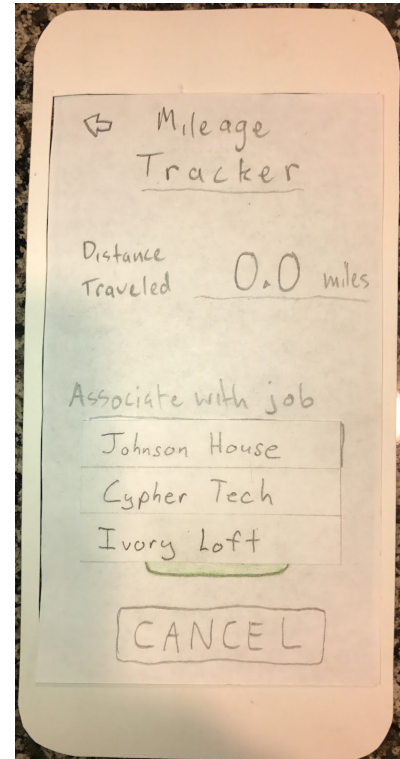 Mileage
Tracker
Distance
Traveled
0.0 miles
Associate with job
Johnson House
Cypher Tech
Ivory Loft
CANCEL